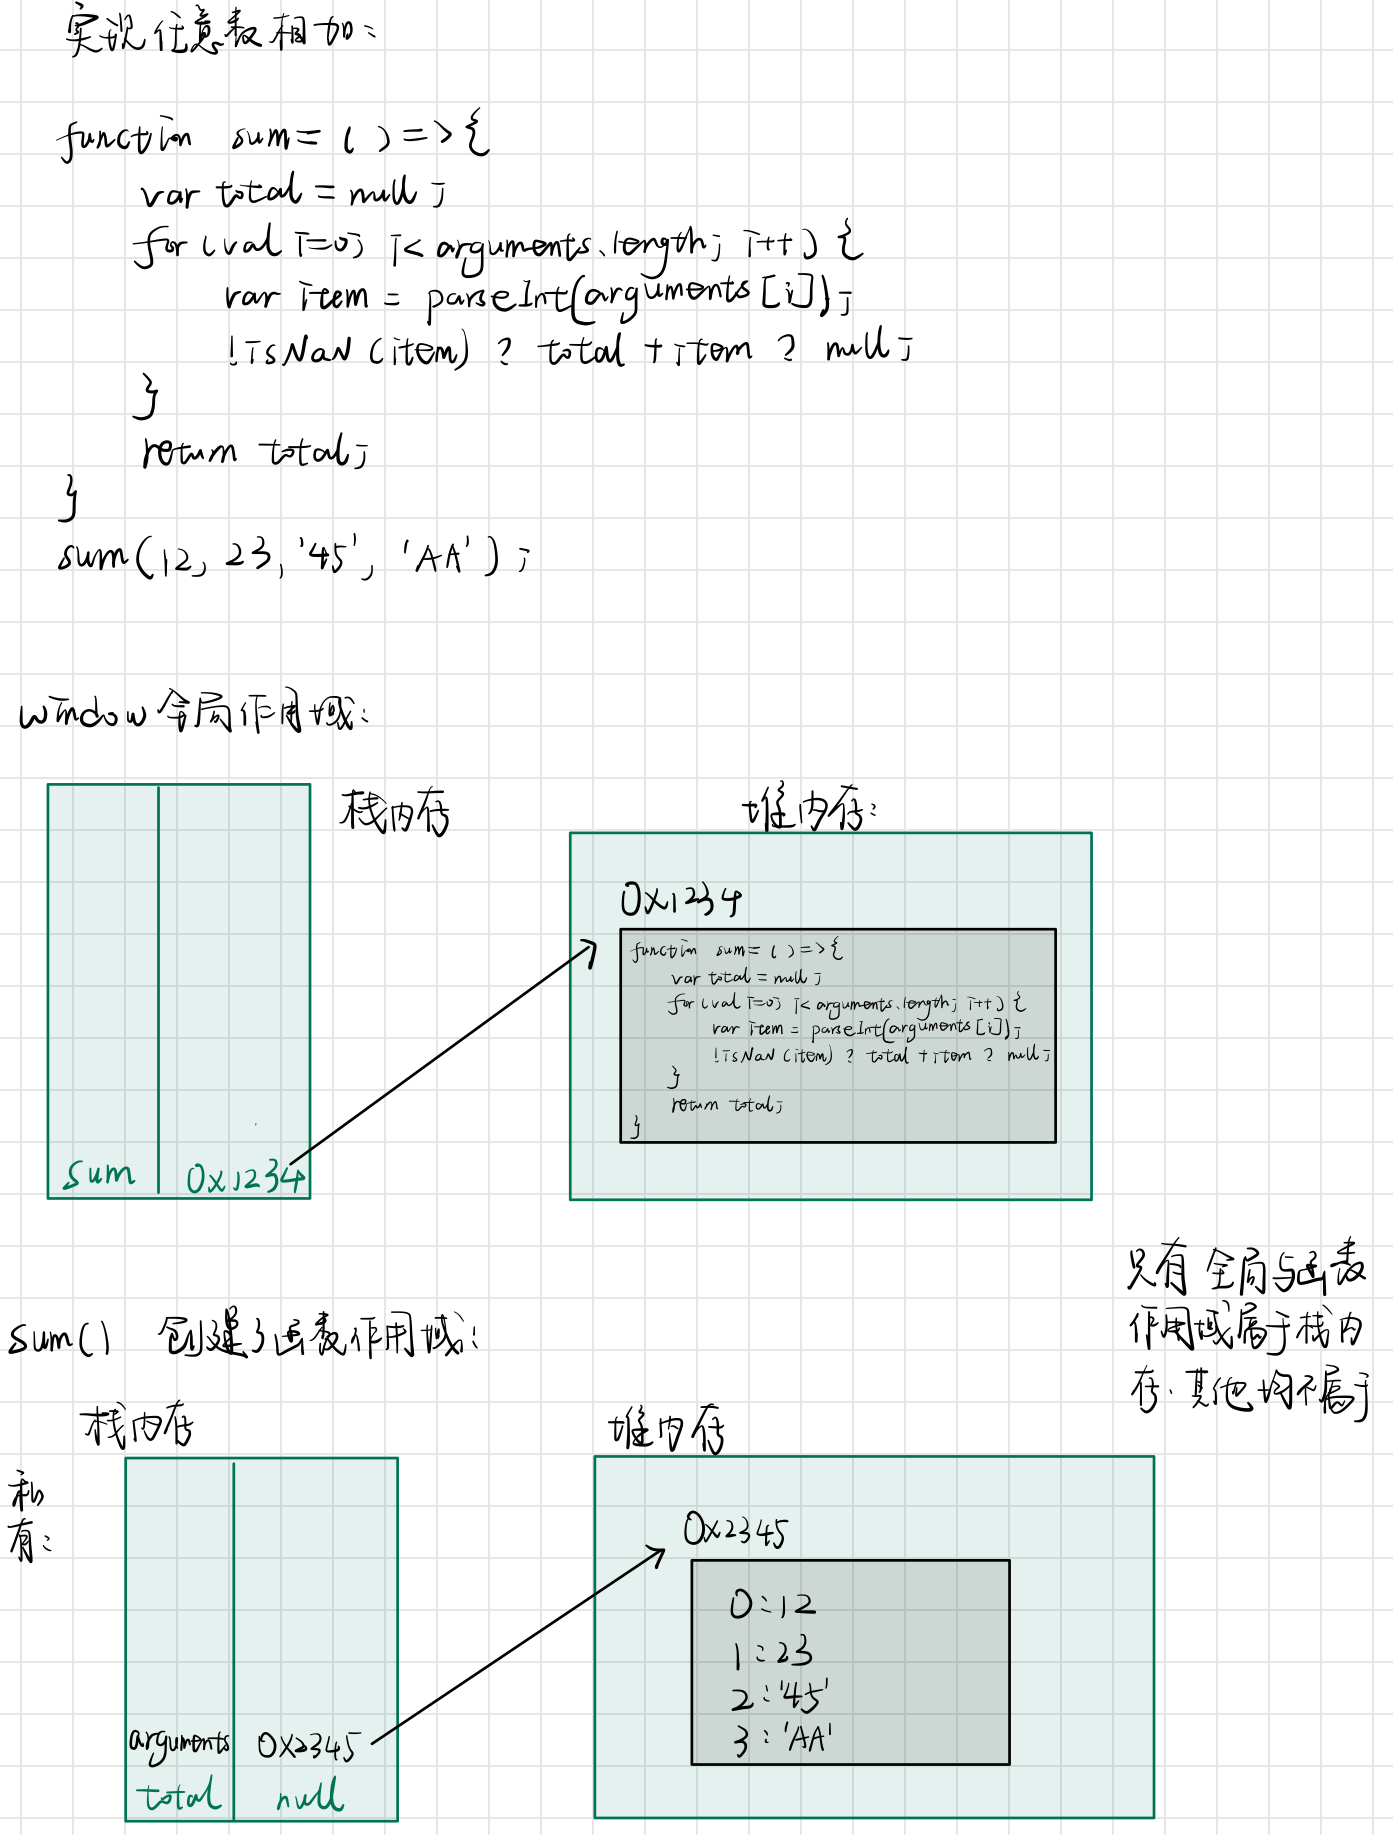 实现任意数相加:
function sum = ( ) => {
var total = null;
for (val i=0; i< arguments.length; i++) {
var item = parseInt(arguments[i]);
!isNaN (item) ? total + item ? null;
}
return total;
}
sum(12, 23, '45', 'AA');
window 全局作用域:
栈内存
堆内存:
0x1234
function sum = ( ) => {
var total = null;
for (val i=0; i< arguments.length; i++) {
var item = parseInt(arguments[i]);
!isNaN (item) ? total + item ? null;
}
return total;
}
sum 0x1234
只有全局与函数
作用域属于栈内
存.其他均不属于
sum() 创建了函数作用域:
栈内存
堆内存
私
有:
0x2345
0:12
1:23
2:'45'
3:'AA'
arguments 0x2345
total null